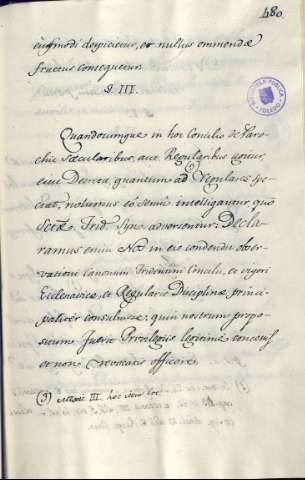 480
eiusmodi despicietur, et nullus emmendæ
fructus consequetur.
§. III.
Quandocumque in hoc Concilio de Paro-
chiis sæcularibus, aut Regularibus agitur,
eius Decreta, quantum ad Regulares spe-
ctat, nolumus eo sensu intelligantur, quo
Sctæ. Trid. Syno. adversentur: Decla-
ramus enim Nos in eis condendis obser-
vationi Canonum Tridentini Concilii, et vigori
Eclesiasticæ, et Regularis Disciplinæ princi-
paliter consuluisse; quin nostrum propo-
situm Justis Privilegiis legitime concessis
et non revocatis officere.
(3) III. hoc
BIBLIOTECA PUBLICA
TOLEDO